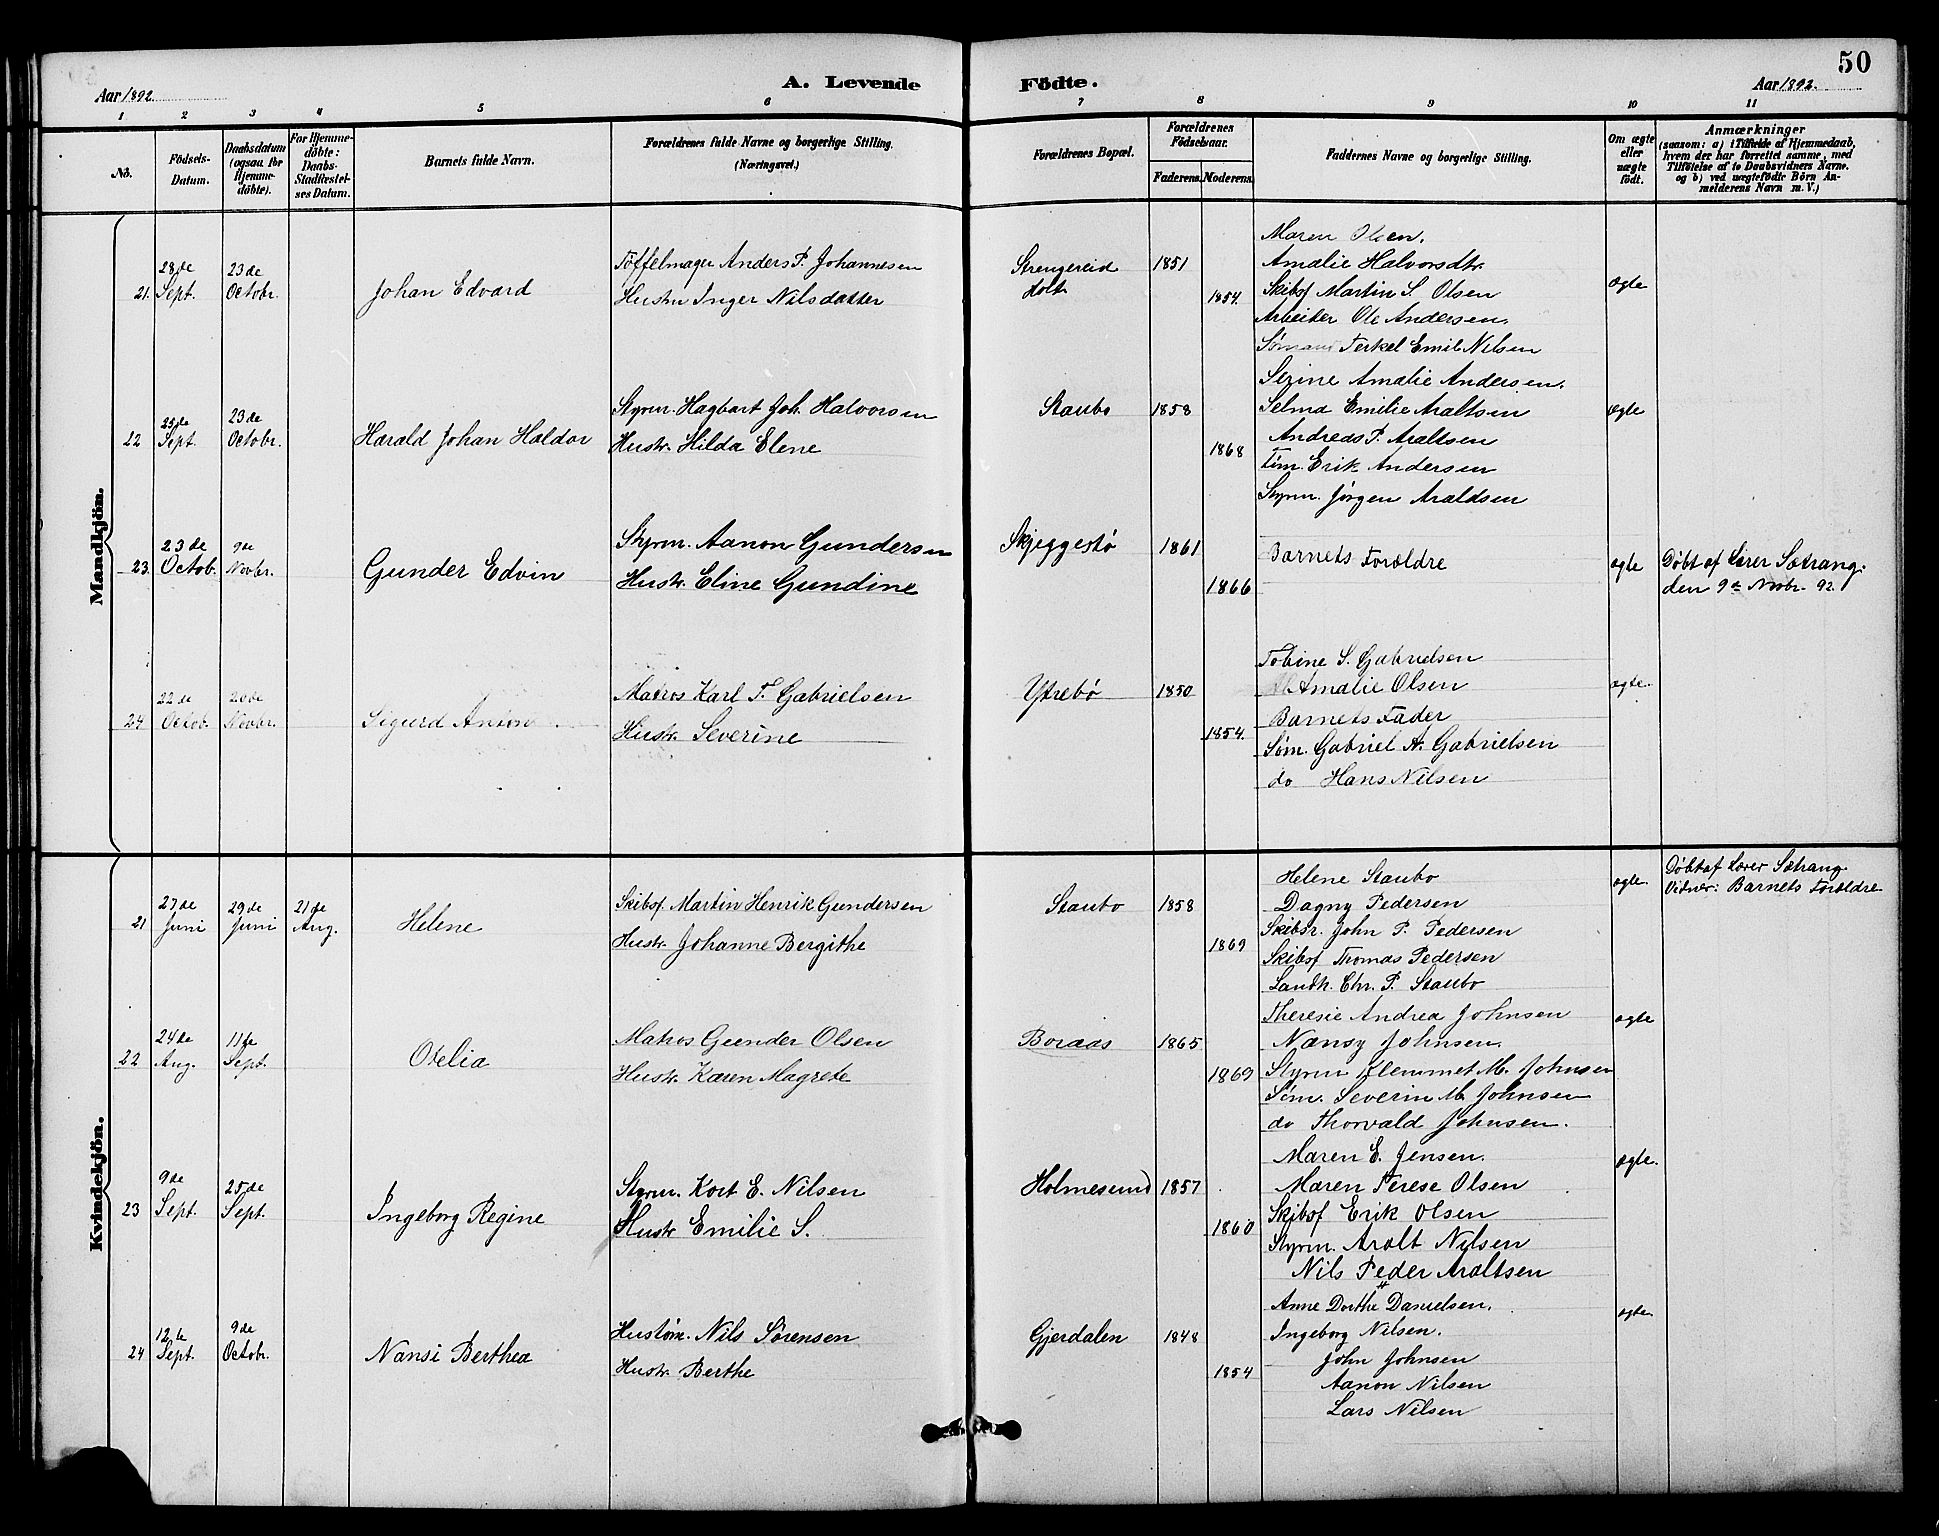 50
Aar 1892.
A. Levende
Födte.
Aar 1892.
1 2 3 4 5 6 7 8 9 10 11
No.
Födsels-
Datum.
Daabsdatum
(ogsaa for
Hjemme-
döbte).
For Hjemme-
döbte:
Daabs-
Stadfæstel-
ses Datum.
Barnets fulde Navn.
Forældrenes fulde Navne og borgerlige Stilling.
(Næringsvei.)
Forældrenes Bopæl.
Forældrenes
Födselsaar.
Faderens. Moderens.
Faddernes Navne og borgerlige Stilling.
Om ægte
eller
uægte
födt.
Anmærkninger
(saasom: a) i Tilfælde af Hjemmedaab,
hvem der har forrettet samme, med
Tilföielse af to Daabsvidners Navne.
og b) ved uægtefödte Börn An-
melderens Navn m. V.)
Mandkjön.
21. 28de Sept.
23de Octobr.
Johan Edvard
Tøffelmager Anders P. Johannesen
Hustru Inger Nilsdatter
Strengereid
Holt
1851
1854.
Maren Olsen.
Amalie Halvorsdtr.
Skibsf Martin S. Olsen
Arbeider Ole Andersen.
Sømand Terkel Emil Nilsen
ægte
22 25de Sept.
23de Octobr.
Harald Johan Haldor
Styrm. Hagbart Joh. Halvorsen
Hustr. Hilda Elene
Staubo
1858
1868
Serine Amalie Andersen.
Selma Emilie Araltsen
Andreas P. Araltsen
Tøm. Erik Andersen
Styrm. Jørgen Araldsen
ægte
23. 23de Octob.
9de Novbr.
Gunder Edvin
Styrm. Aanon Gundersen
Hustr. Eline Gundine
Skjeggestø
1861
1866
Barnets Forældre
ægte
Døbt af Lærer Sætrang.
den 9de Novbr. 92.
24 22de Octob.
20de Novbr.
Sigurd Anton
Matros Karl T. Gabrielsen
Hustr. Severine
Ytrebø
1850
1854.
Tobine S. Gabrielsen
Amalie Olsen
Barnets Fader
Søm. Gabriel A. Gabrielsen
do Hans Nilsen
ægte.
Kvindekjön.
21 27de Juni
29de Juni
21de Aug.
Helene
Skibsf. Martin Henrik Gundersen
Hustr. Johanne Bergithe
Staubo
1858
1869
Helene Staubo
Dagny Pedersen
Skibsr. John P. Pedersen
Skibsf Thomas Pedersen
Landh. Chr. P. Staubo
ægte.
Døbt af Lærer Sætrang
Vidner: Barnets Forældre
22 24de Aug.
11te Sept.
Otelia
Matros Gunder Olsen
Hustr. Karen Magrete
Boraas
1865
1869
Theresie Andrea Johnsen
Nansy Johnsen.
Styrm Klemmet M. Johnsen
Søm. Severin M. Johnsen
do Thorvald Johnsen.
ægte
23 9de Sept.
25de Sept.
Ingeborg Regine
Styrm. Kort E. Nilsen
Hustr Emilie S.
Holmesund
1857
1860
Maren E. Jensen.
Maren Terese Olsen
Skibsf Erik Olsen
Styrm. Aralt Nilsen
Nils Peder Araltsen
ægte.
24 12te Sept.
9de Octobr.
Nansi Berthea
Hustøm. Nils Sørensen
Hustr. Berthe
Gjerdalen
1848
1854
Anne Dorthe Danielsen.
Ingeborg Nilsen.
John Johnsen
Aanon Nilsen
Lars Nilsen
ægte.